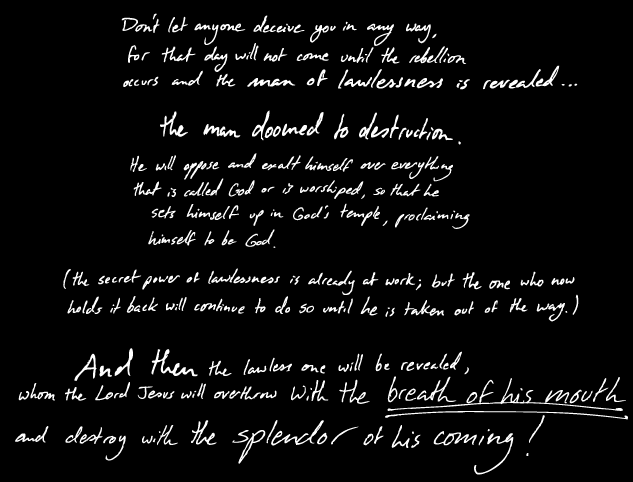 Don't let anyone deceive you in any way,
for that day will not come until the rebellion
occurs and the man of lawlessness is revealed...
the man doomed to destruction.
He will oppose and exalt himself over everything
that is called God or is worshiped, so that he
sets himself up in God's temple, proclaiming
himself to be God.
(the secret power of lawlessness is already at work; but the one who now
holds it back will continue to do so until he is taken out of the way.)
And then the lawless one will be revealed,
whom the Lord Jesus will overthrow with the breath of his mouth
and destroy with the splendor of his coming!